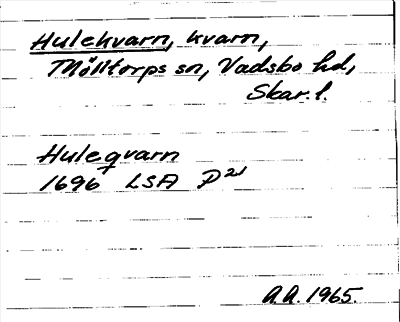 Hulekvarn, kvarn,
Mölltorps sn, Vadsbo hd,
Skar. l.
Huleqvarn
1696 LSA P 21
A.A. 1965.